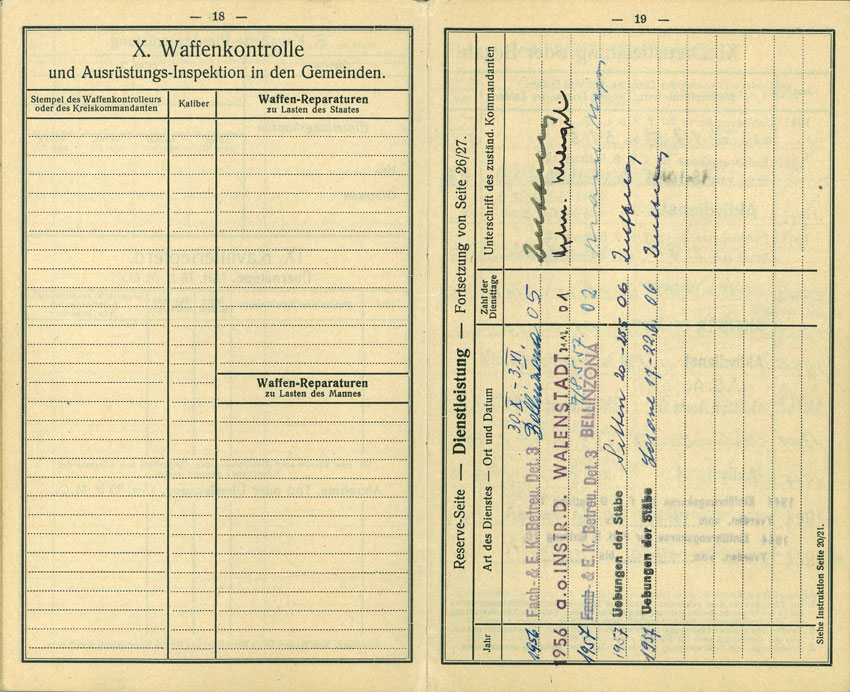 — 18 —
X. Waffenkontrolle
und Ausrüstungs-Inspektion in den Gemeinden.
Stempel des Waffenkontrolleurs
oder des Kreiskommandanten
Kaliber
Waffen-Reparaturen
zu Lasten des Staates
Waffen-Reparaturen
zu Lasten des Mannes
— 19 —
Reserve-Seite — Dienstleistung — Fortsetzung von Seite 26/27.
Jahr
Art des Dienstes — Ort und Datum
Zahl der
Diensttage
Unterschrift des zuständ. Kommandanten
30.X. - 3.XI.
1956 Fach- & E. K. Betreu. Det. 3 Bellinzona 05
1956 a.o. INSTR. D. WALENSTADT 01
7/8.5.57
1957 Fach- & E. K. Betreu. Det. 3 BELLINZONA 02
1957 Uebungen der Stäbe Sitten 20.-25. 06
1957 Uebungen der Stäbe Losone 17.-22.6. 06
Siehe Instruktion Seite 20/21.